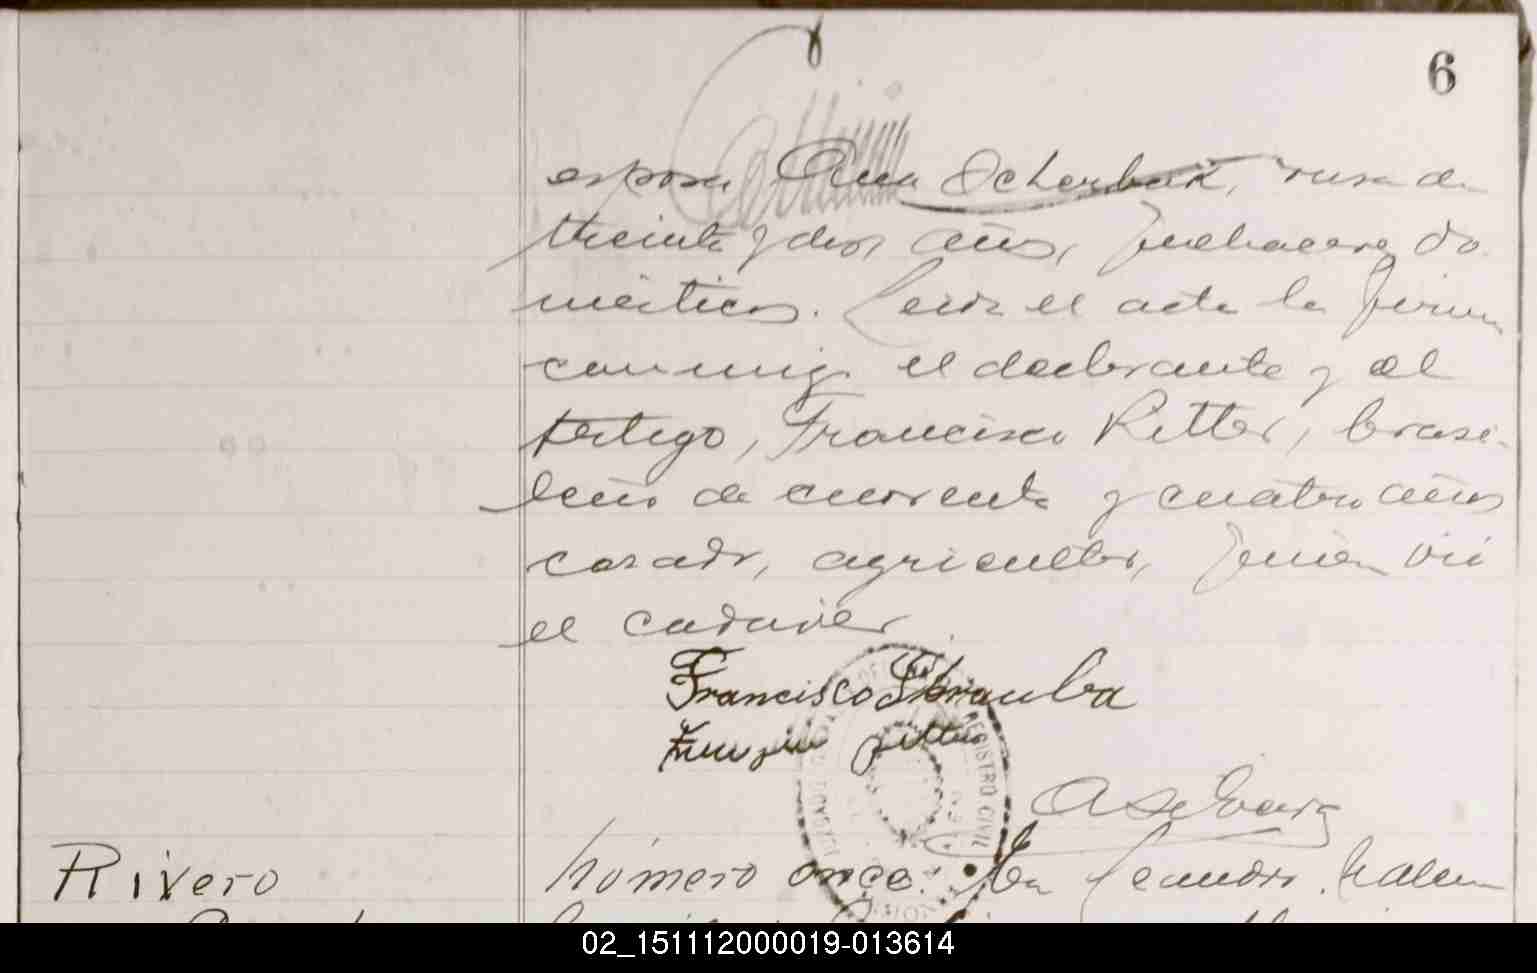 6
esposa Ana Scherbak, rusa de
treinta y dos años, quehaceres do
mésticos. Leida el acta la firma
conmigo el declarante y el
testigo, Francisco Ritter, brasi-
leño de cuarenta y cuatro años
casado, agricultor, quien vió
el cadáver
Francisco
REGISTRO CIVIL
Rivero
Número once. En Leandro
02_151112000019-013614